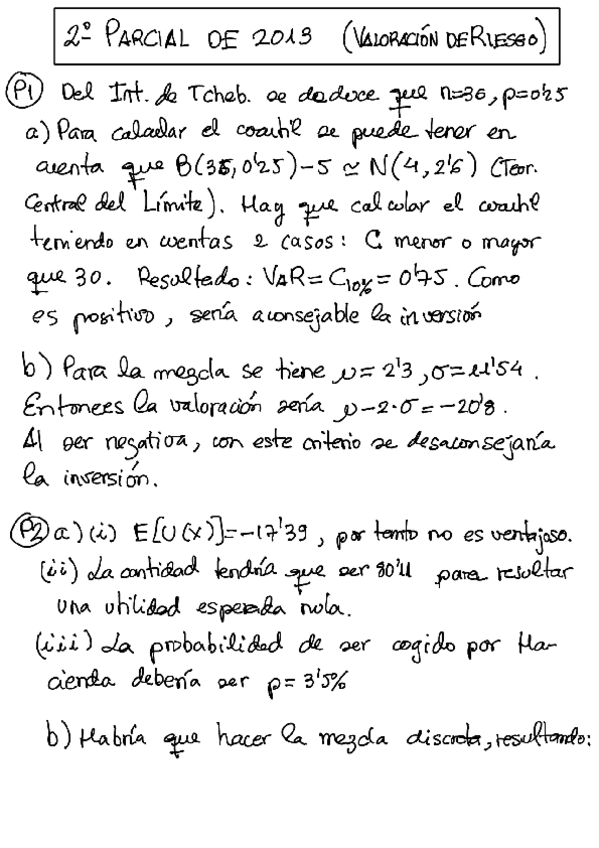 2º PARCIAL DE 2013 (VALORACIÓN DE RIESGO)
P1 Del Int. de Tcheb. se deduce que n=36, p=0'25
a) Para calcular el cuantil se puede tener en
cuenta que B(36, 0'25)-5 ≃ N(4, 2'6) (Teor.
Central del Límite). Hay que calcular el cuantil
teniendo en cuentas 2 casos: C menor o mayor
que 30. Resultado: VAR = C10% = 0'75. Como
es positivo, sería aconsejable la inversión
b) Para la mezcla se tiene μ = 2'3, σ = 11'54.
Entonces la valoración sería μ-2·σ = -20'8.
Al ser negativa, con este criterio se desaconsejaría
la inversión.
P2 a) (i) E[U(X)] = -17'39, por tanto no es ventajoso.
(ii) La cantidad tendría que ser 80'11 para resultar
una utilidad esperada nula.
(iii) La probabilidad de ser cogido por Ha-
cienda debería ser p = 3'5%
b) Habría que hacer la mezcla discreta, resultando: